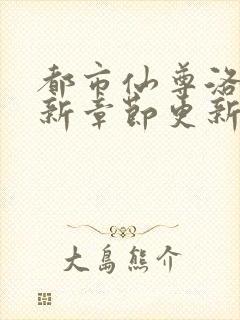 都市仙尊洛
新章節更新
大島熊介